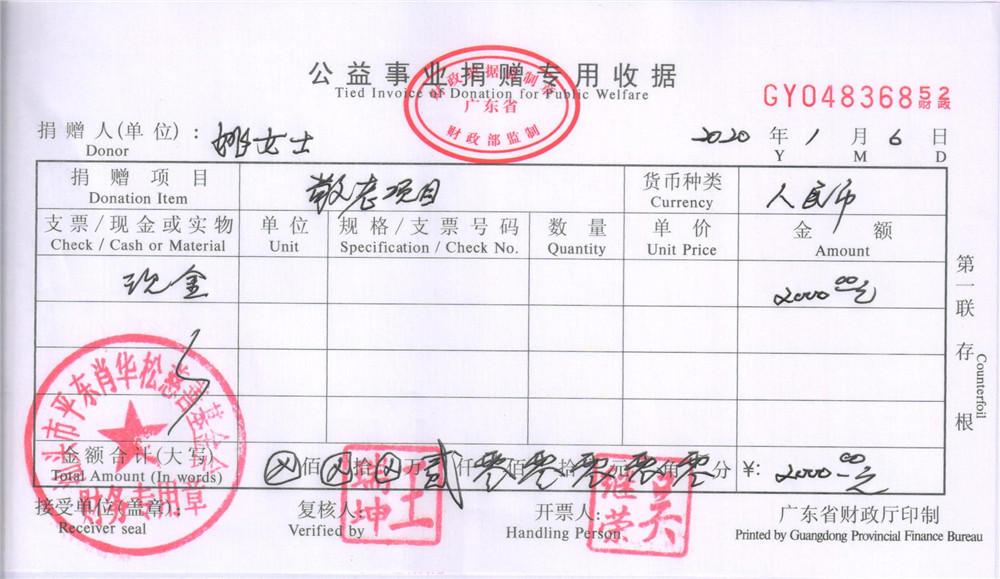 公益事业捐赠专用收据
Tied Invoice of Donation for Public Welfare
财政票据监制章
广东省
财政部监制
GY04836852
财政
捐赠人(单位): 姚女士 2020 年 1 月 6 日
Donor Y M D
捐赠项目 敬老项目 货币种类 人民币
Donation Item Currency
支票/现金或实物 单位 规格/支票号码 数量 单价 金额
Check / Cash or Material Unit Specification / Check No. Quantity Unit Price Amount
现金 2000.00元
金额合计(大写) 佰 拾 万 贰 仟 零 佰 零 拾 零 元 零 角 零 分 ¥: 2000.00元
Total Amount (In words)
接受单位(盖章): 复核人: 开票人: 广东省财政厅印制
Receiver seal Verified by Handling Person Printed by Guangdong Provincial Finance Bureau
第一联 存根
Counterfoil
汕头市平东肖华松慈善基金会
财务专用章
王
坤
吴继荣